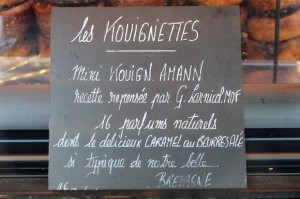 les KOUIGNETTES
Mini KOUIGN AMANN
recette repensée par G. Larnicol MOF
16 parfums naturels
dont le délicieux CARAMEL au BEURRE SALÉ
si typique de notre belle
BRETAGNE